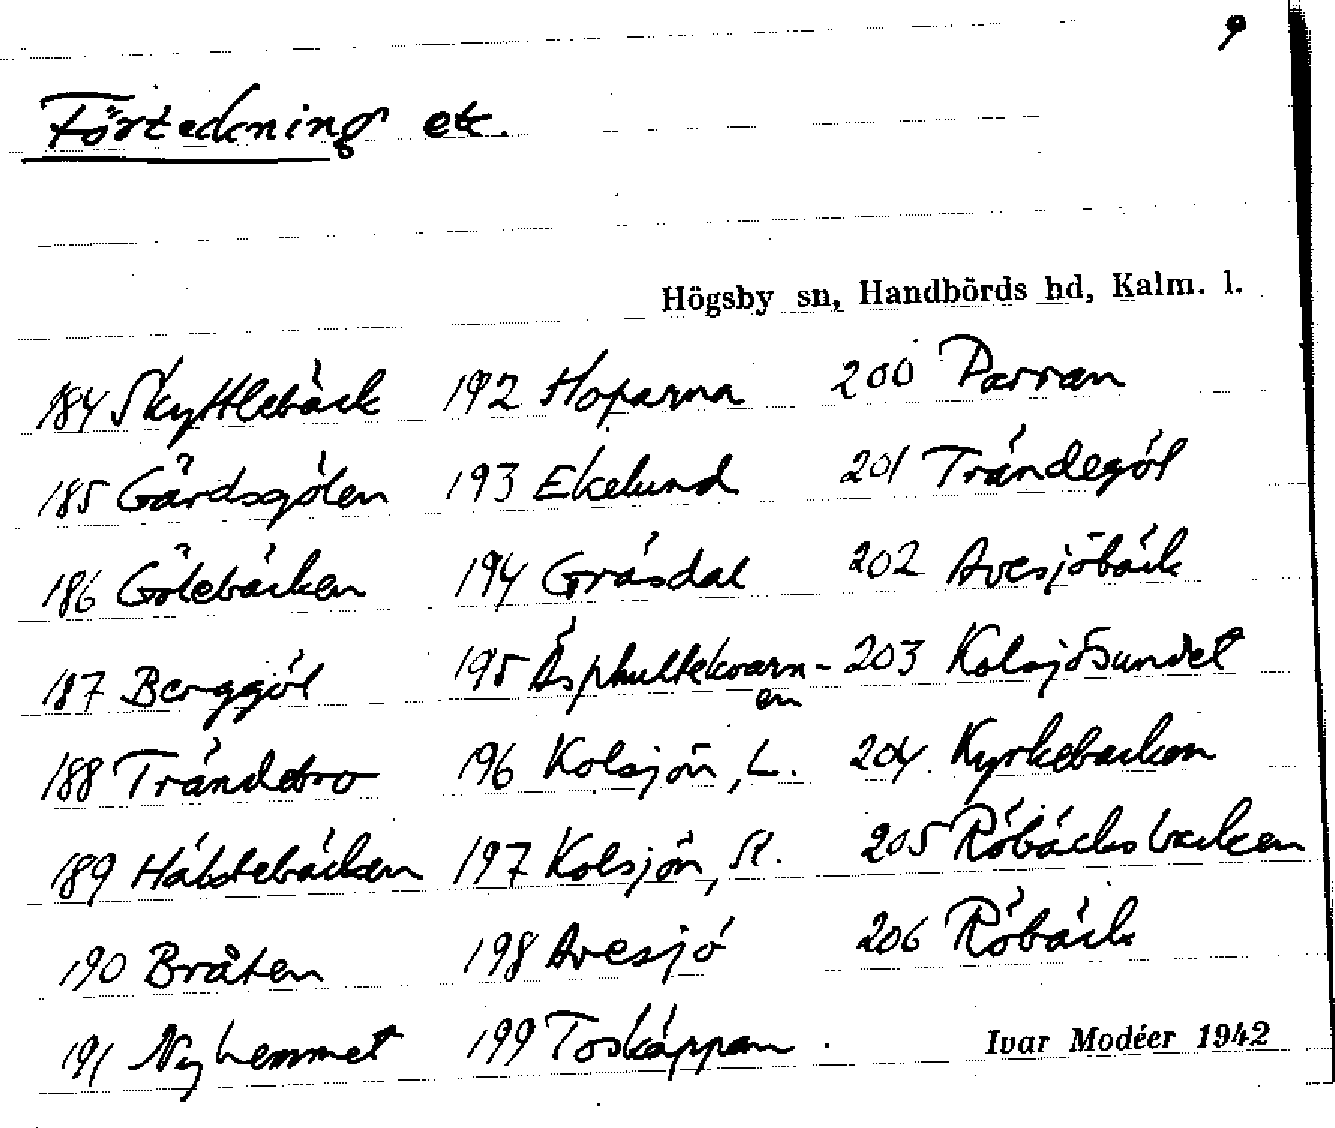 9
Förteckning etc.
Högsby sn, Handbörds hd, Kalm. l.
184 Skyttlebäck 192 Hoparna 200 Parran
185 Gårdsgölen 193 Ekelund 201 Trändegöl
186 Gölebäcken 194 Gräsdal 202 Avesjöbäck
187 Berggöl 195 Äsphultekvarn- 203 Kolsjösundet
en
188 Trändebro 196 Kolsjön, L. 204 Kyrkebacken
189 Hälstebäcken 197 Kolsjön, St. 205 Röbäcksbacken
190 Bråten 198 Avesjö 206 Röbäck
191 Nyhemmet 199 Toskäppan
Ivar Modéer 1942